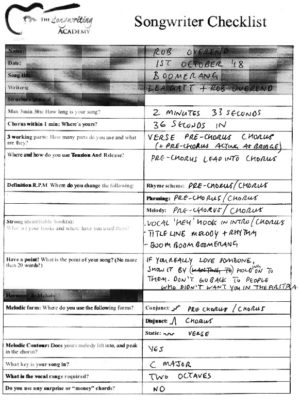 THE songwriting
ACADEMY
Songwriter Checklist
Name:
ROB OVEREND
Date:
1ST OCTOBER '18
Song title:
BOOMERANG
Writers:
+ ROB OVEREND
Max 3min 30s. How long is your song?
2 MINUTES 33 SECONDS
Chorus within 1 min: Where's yours?
36 SECONDS IN
3 working parts: How many parts do you use and what are they?
VERSE PRE-CHORUS CHORUS
(+ PRE-CHORUS ACTING AS BRIDGE)
Where and how do you use Tension And Release?
PRE-CHORUS LEAP INTO CHORUS
Definition R.P.M When do you change the following:
Rhyme scheme: PRE-CHORUS/CHORUS
Phrasing: PRE-CHORUS/CHORUS
Melody: PRE-CHORUS/CHORUS
Strong identifiable hook(s):
What are your hooks and where have you used them?
- VOCAL 'HEY' HOOK IN INTRO/CHORUS
- TITLE LINE MELODY + RHYTHM
- BOOM BOOM BOOMERANG
Have a point! What is the point of your song? (No more than 20 words!)
IF YOU REALLY LOVE SOMEONE,
SHOW IT BY HOLD ON TO
THEM. DON'T GO BACK TO PEOPLE
WHO DIDN'T WANT YOU IN THE FIRST PLA
Melodic form: Where do you use the following forms?
Conjunct: PRE CHORUS / CHORUS
Disjunct: CHORUS
Static: VERSE
Melodic Contour: Does your melody fall into, and peak in the chorus?
YES
What key is your song in?
C MAJOR
What is the vocal range required?
TWO OCTAVES
Do you use any surprise or "money" chords?
NO